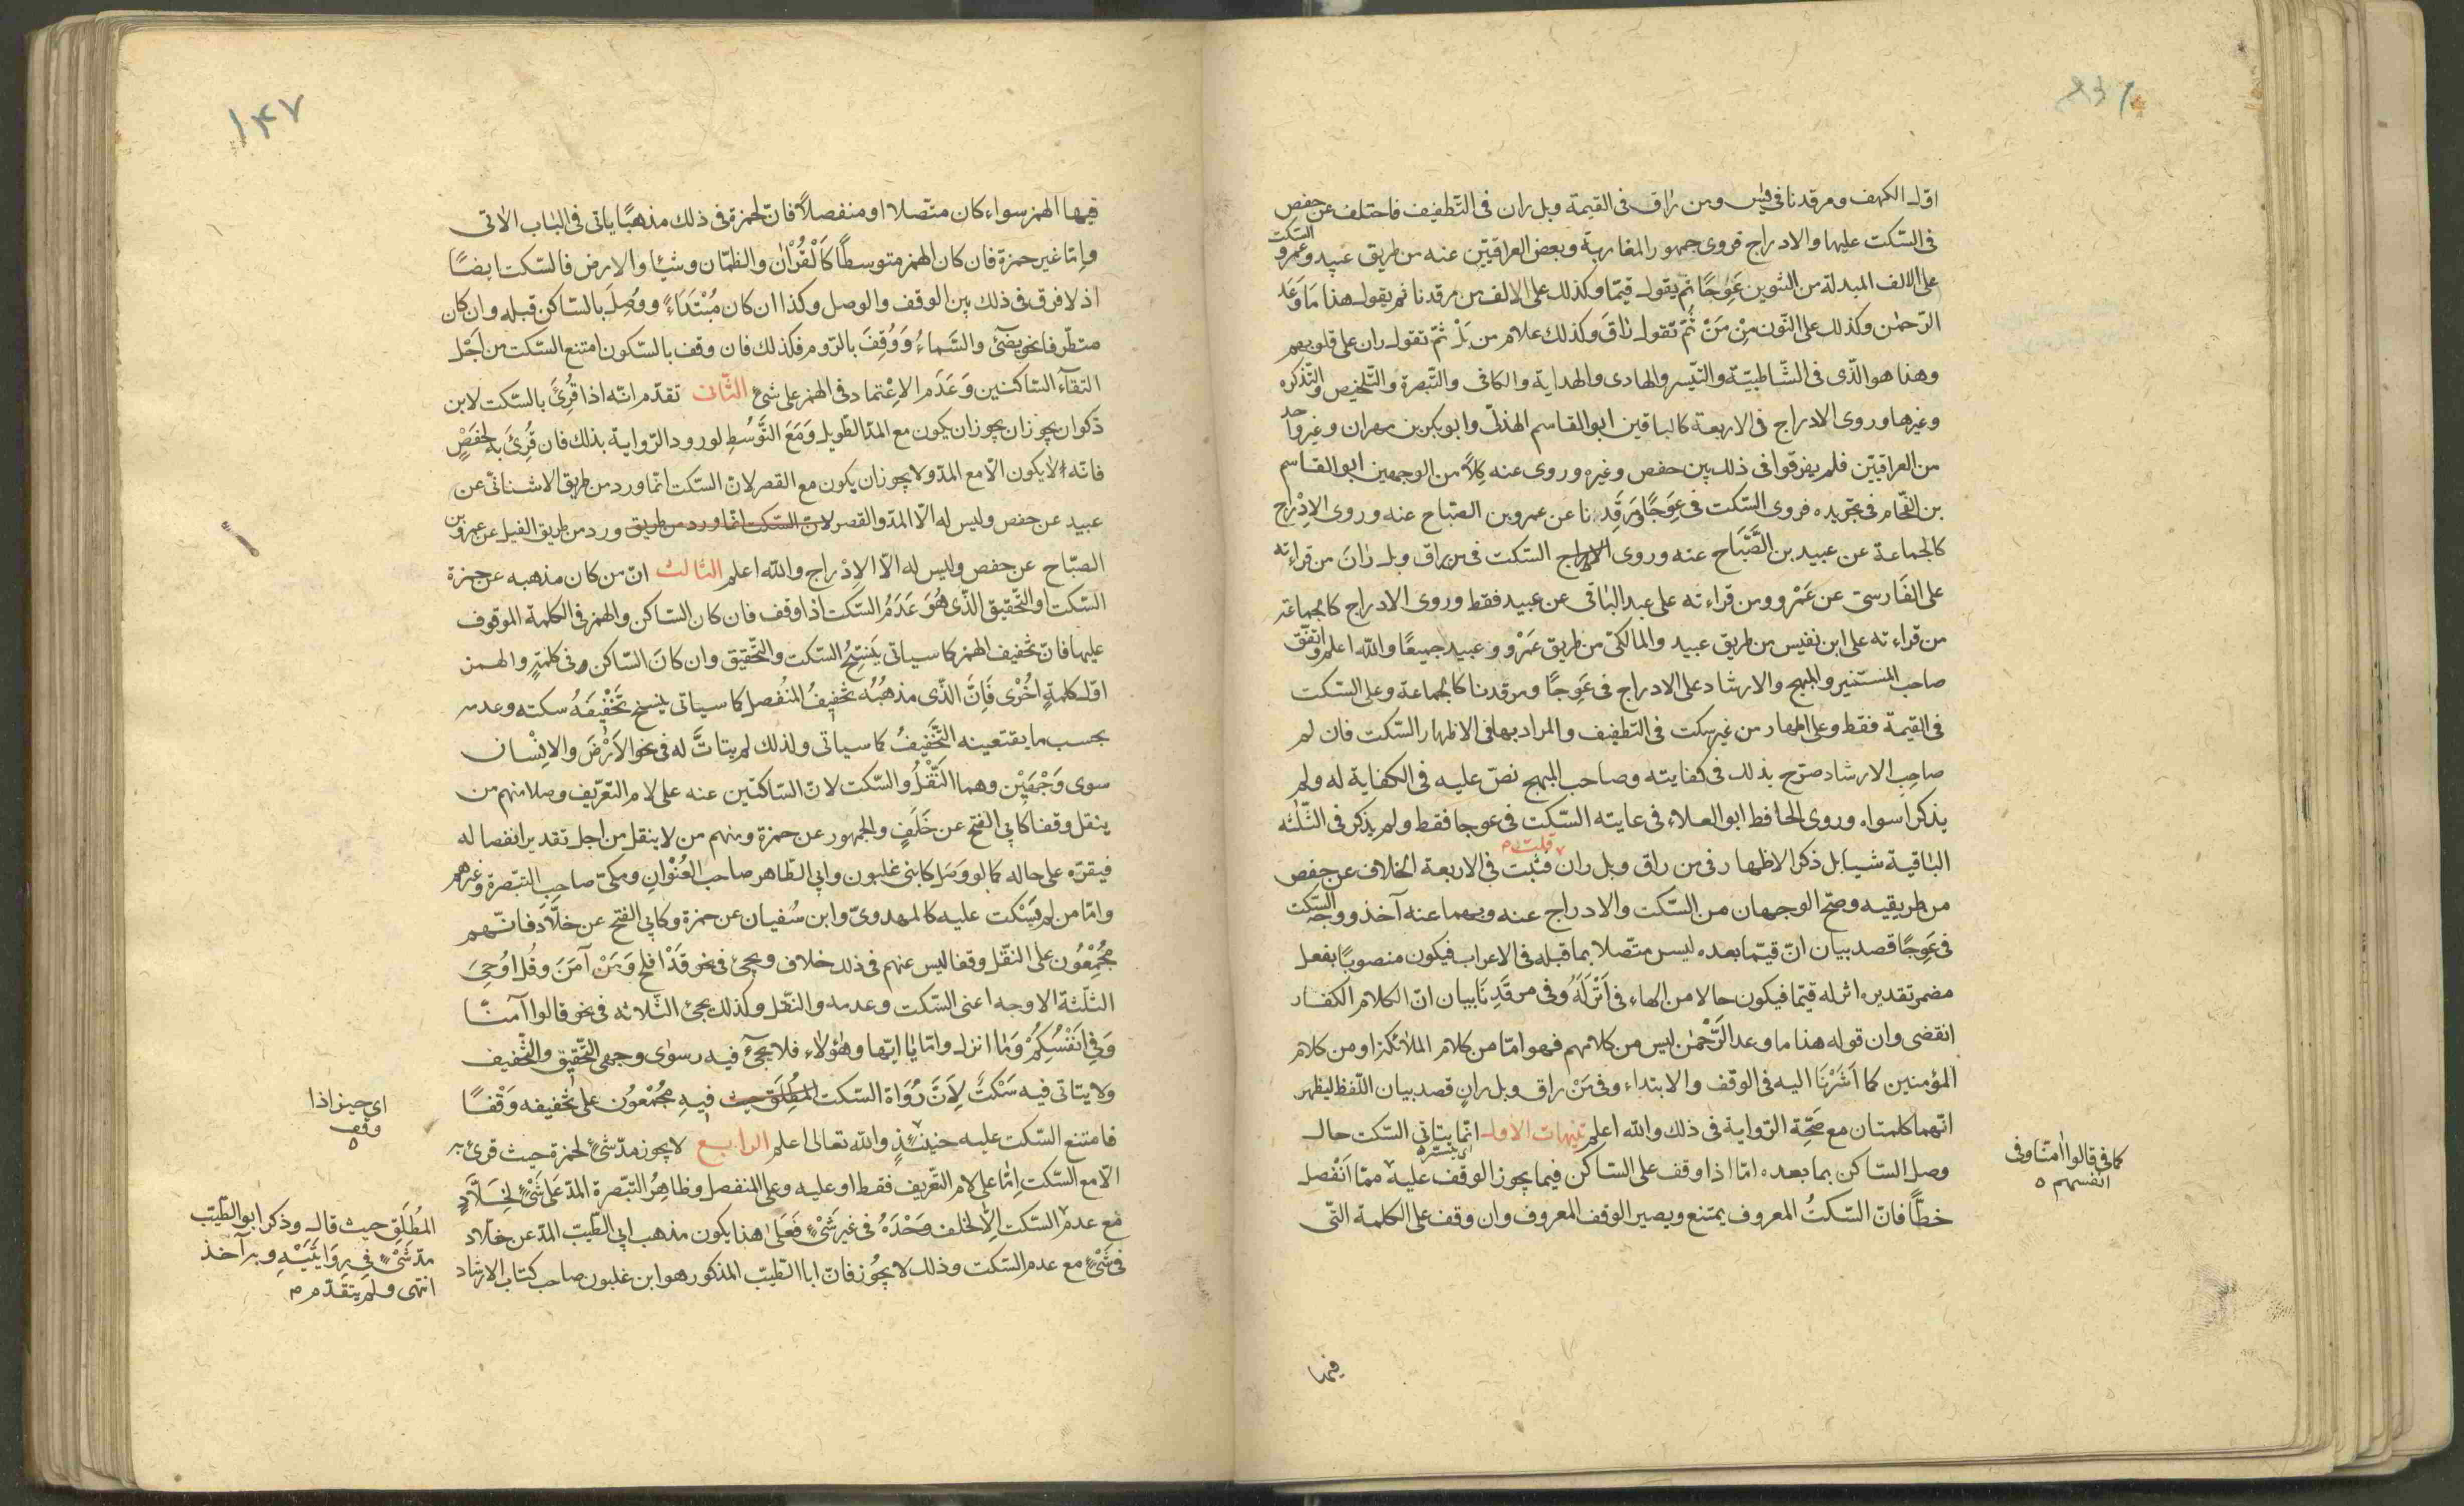 اول الكهف ومرقدنا في يٰس ومن راق في القيمة وبل ران في التّطفيف فاختلف عن حفص
في السّكت عليها والادراج فروى جمهور المغاربة وبعض العراقيّين عنه من طريق عبيد وعمرو السّكت
على الالف المبدلة من التنوين عِوَجًا ثم يقول قيّما وكذلك على الالف من مرقدنا ثم يقول هذا مَا وَعَدَ
الرّحمٰن وكذلك على النّون مِنْ مَنْ ثُمّ تقول رٰاقَ وكذلك على لام من بَلْ ثمّ تقول ران على قلوبهم
وهذا هو الّذى في الشّاطبيّة والتّيسر والهادى والهداية والكافى والتّبصرة والتّلخيص والتّذكره
وغيرها وروى الادراج في الاربعة كالباقين ابو القاسم الهذلىّ وابو بكر بن مهران وغير واحد
من العراقيّين فلم يفرقوا في ذلك بين حفص وغيره وروى عنه كِلاًّ من الوجهين ابو القاسم
بن الفحّام في تجريده فروى السّكت في عِوَجًا ومَرقَدِنا عن عمرو بن الصّباح عنه وروى الاِدْراج
كالجماعة عن عبيد بن الصَّبَّاح عنه وروى السّكت في من راق وبل رانَ من قراءته
على الفَارسىّ عن عَمْرو ومن قراءته على عبد الباقى عن عبيد فقط وروى الادراج كالجماعة
من قراءته على ابن نفيس من طريق عبيد والمالكىّ من طريق عَمْرو وعبيد جميعًا والله اعلم واتفّق
صاحب المستنير والمبهج والارشاد على الادراج في عَوِجًا ومرقدنا كالجماعة وعلى السّكت
في القيمة فقط وعلى الاظهار من غير سكت في التطفيف والمراد بهافى الاظهار السّكت فان لم
صاحِب الارشاد صرّح بذلك في كفايته وصاحب المبهج نصّ عليه في الكفاية له ولم
يذكرا سواه وروى الحافظ ابو العلاء في غايته السّكت في عوجا فقط ولم يذكر في الثّلٰثه
الباقية شيا بل ذكر الاظهار في من راق وبل ران قلت فثبت في الاربعة الخلاف عن حفص
من طريقيه وصحّ الوجهان من السّكت والادراج عنه وبهما عنه آخذ ووجه السّكت
في عَوِجًا قصد بيان انّ قيّما بعده ليس متّصلا بما قبله في الاعراب فيكون منصوبًا بفعل
مضمر تقديره انزله قيّما فيكون حالا من الهاء في اَنْزَلَهُ وفى مرقَدِنَا بيان انّ الكلام الكفار
انقضى وان قوله هذا ما وعد الرَّحْمٰن ليس من كلامهم فهو امّا من كلام الملائكة او من كلام
المؤمنين كما اَشَرْنَا اليه في الوقف والابتداء وفى مَنْ راق وبل ران قصد بيان اللّفظ ليظهر
انّهما كلمتان مع صَحّة الرّواية في ذلك والله اعلم تنبيهات الاول انّما يتاتى السّكت حال
وصل السّاكن بما بعده امّا اذا وقف على السّاكن فيما يجوز الوقف عليه ممّا اَنْفصل
خطاًّ فانّ السّكتُ المعروف يمتنع ويصير الوقف المعروف وان وقف على الكلمة الّتى
كما في قالوا اٰمنّا وفى
انفسهم ٥
فيها
١٤٧
فيها الهمز سواء كان متّصلا او منفصلاً فانّ لحمزة في ذلك مذهبًا ياتى في الباب الاٰتى
وامّا غير حمزة فان كان الهمز متوسطًا كَاَلْقُرْاٰن والظمّان وشيئا والارض فالسّكت ايضًا
اذ لا فرق في ذلك بين الوقف والوصل وكذا ان كان مُبْتَدَاءً ووُصِلَ بالسّاكن قبله وان كان
متطّرفا نحو يضئ والسَّماءُ وَوُقِفَ بالرّوم فكذلك فان وقف بالسّكون امتنع السّكت من اَجَل
التقآء السّاكنين وَعَدَم الاِعْتماد في الهمز على شئ الثّانى تقدّم انّه اذا قُرِئَ بالسّكت لابن
ذكوان يجوز ان يجوز ان يكون مع المدّ الطويل وَمَعَ التَّوسُّطِ لورود الرّواية بذلك فان قُرِئَ به لحَفَصٍ
فانّه لا يكون الّا مع المدّ ولا يجوز ان يكون مع القصر لانّ السّكت انّما ورد من طريق الاشنانىّ عن
عبيد عن حفص وليس له الّا المدّ والقصر لانّ السّكت انّما ورد من طريق ورد من طريق الفيل عن عمرو بن
الصبّاح عن حفص وليس له الّا الاِدْراج والله اعلم الثالث انّ من كان مذهبه عن حمزة
السّكت او التّحقيق الّذى هُوَ عَدَمُ السّكت اذا وقف فان كان السّاكن والهمز في الكلمة الموقوف
عليها فانّ تخفيف الهمز كما سياتى يَنسَخُ السّكت والتّحقيق وان كانَ السّاكن في كلمتٍ والهمز
اول كلمةٍ اُخْرٰى فَاِنَّ الّذى مذهبُه تخفيفُ المنُفصل كما سياتى ينسخ تَخْفْيفَهُ سكته وعدمه
بحسب ما يقتعينه التَّخْفيفُ كما سياتى ولذلك لم يتاتَّ له في نحو الاَرْضَ والانْسان
سوى وَجْهَيْن وهما النّقْلُ والسّكت لانّ السّاكتين عنه على لام التعّريف وصلا منهم من
ينقل وقفا كابى الفتح عن خَلَفٍ والجمهور عن حمزة ومنهم من لا ينقل من اجل تقدير انفصاله
فيقرّه على حاله كما لو وَصَل كابنى غلبون وابى الطّاهر صاحب العُنْوٰان ومكىّ صاحِب التبّصرة وغيرهم
وامّا من لم يَسْكت عليه كالمهدوىّ وابن سُفيان عن حمزة وكابى الفتح عن خلاّد فانّهم
مُجْمِعُون على النقّل وقفا ليس عنهم في ذلك خلاف ويجئ في نحو قَدْ اَفلح وَمَنْ آمَنَ وقُل اُوحِىَ
الثلٰثة الاوجه اعنى السّكت وعدمه والنّقل وكذلك يجئ الثّلاثه في نحو قالوا آمنّا
وَفي اَنفْسُكِمْ وَمٰا انزل وامّا يٰا ايّها وهٰؤلاء فلا يجئ فيه سوٰى وجهى التّحقيق والتّخفيف
ولا يتاتى فيه سَكْتٌ لِاَنَّ رُوَاة السّكت المُطلَق حيث فيهِ مُجْمْعُون على تخفيفه وَقْفًا
فامتنع السّكت عليه حنيئذٍ والله تعالى اعلم الرابع لا يجوز مدّ شئ لحمزة حيث قرئ به
الّا مع السّكت اِمّا على لام التّعريف فقط او عليه وعلى المنفصل وظاهِرُ التبّصرة المدّ عَلى شئ لِخَلّادٍ
مع عدم السّكت الاّٰ لخلف وَحْدَهُ في غير شَئْ فَعَلىٰ هذا يكون مذهب ابى الطّيب المدّ عن خلّاد
في شَئْ مع عدم السّكت وذلك لا يجُوز فانّ ابا الطّيبّ المذكور هو ابن غلبون صاحب كتاب الارشاد
اى حيز اذا
وقف
٥
المُطلَقِ حيث قال وذكر ابو الطّيّب
مدّ شَئْ في رِوَايَتَيْهِ وبه آخذ
انتهى ولم يتقدّم م